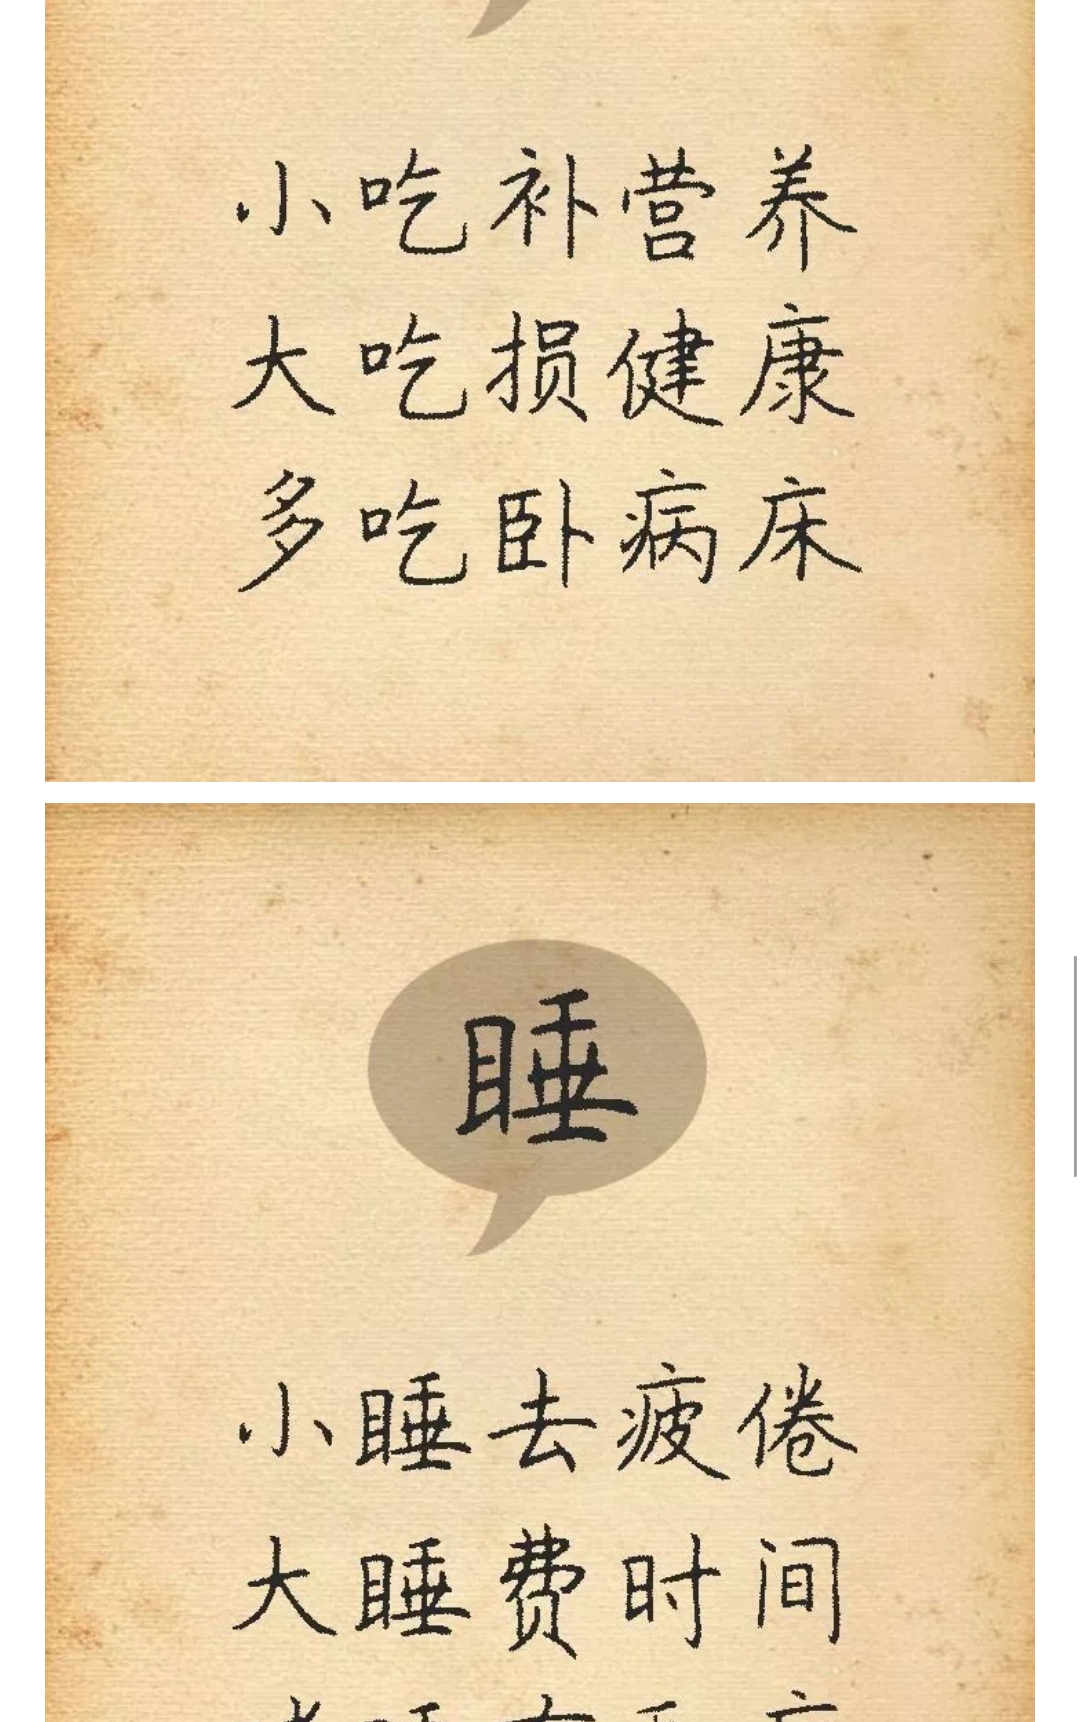 小吃补营养
大吃损健康
多吃卧病床
睡
小睡去疲倦
大睡费时间